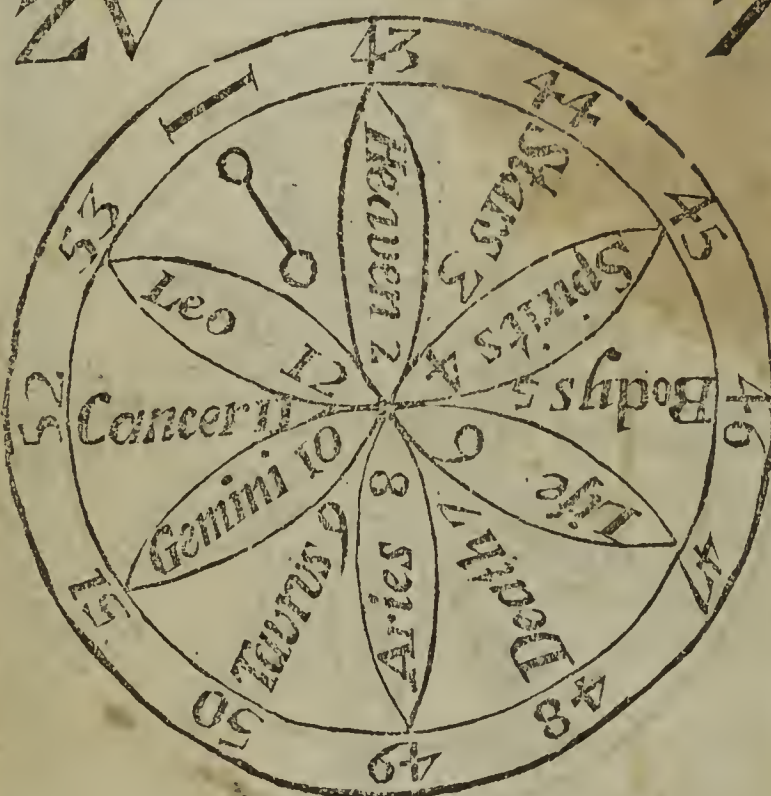 I
43
44
45
46
47
48
49
50
51
52
53
Heaven 2
Stars 3
Spirits 4
Bodys 5
Life 6
Death 7
Aries 8
Taurus 9
Gemini 10
Cancer 11
Leo 12